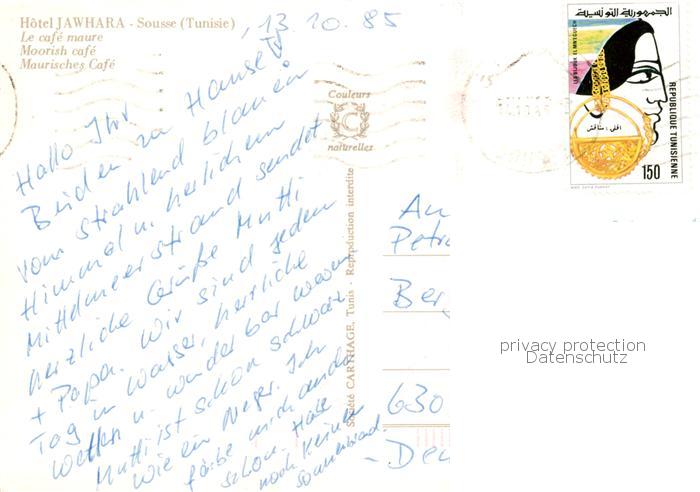 Hôtel JAWHARA - Sousse (Tunisie)
Le café maure
Moorish café
Maurisches Café
13.10.85
Hallo Ihr
Beiden zu Hause!
Vom strahlend blauen
Himmel u. herlichem
Mittelmeerstrand sendet
herzliche Grüße Mutti
+ Papa. Wir sind jeden
Tag im Wasser, herrliche
Wellen u. wunderbar warm
Mutti ist schon schwarz
wie ein Neger. Ich
färbe mich auch
schon. Habe
noch keinen
Sonnenbrand.
Couleurs
C
naturelles
Société CARTHAGE, Tunis - Reproduction interdite
An
Petr
Ber
630
- Deu
الجمهورية التونسية
REPUBLIQUE TUNISIENNE
150
privacy protection
Datenschutz